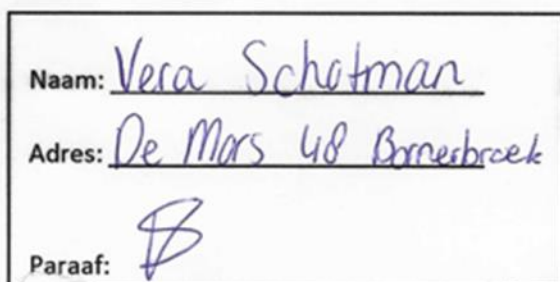 Naam: Vera Schotman
Adres: De Mors 48 Bornerbroek
Paraaf: